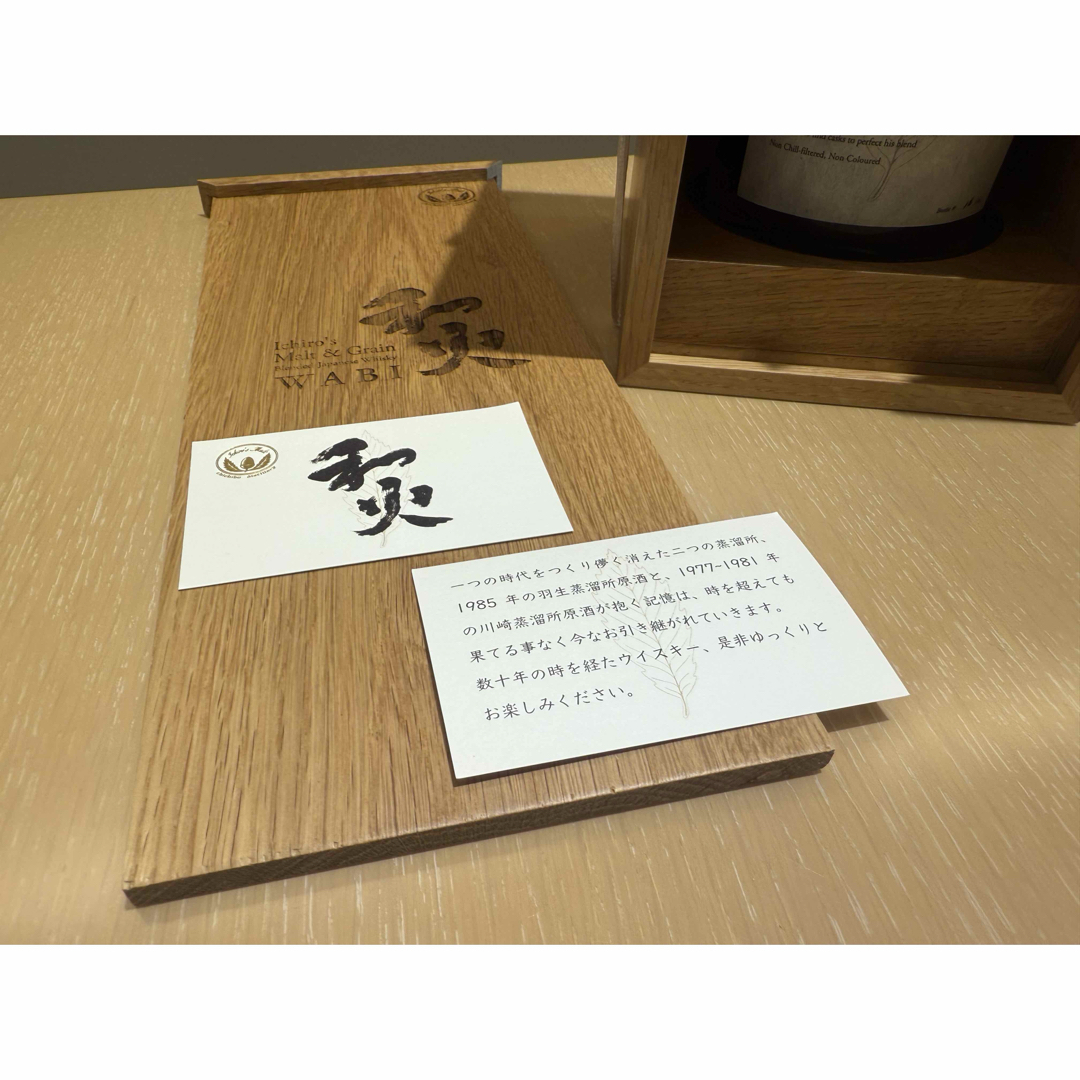 casks to perfect his blend
Non Chill-filtered, Non Coloured
Ichiro's
Malt & Grain
Blended Japanese Whisky
WABI
Ichiro's Malt
一つの時代をつくり儚く消えた二つの蒸溜所、
1985 年の羽生蒸溜所原酒と、1977-1981 年
の川崎蒸溜所原酒が抱く記憶は、時を超えても
果てる事なく今なお引き継がれていきます。
数十年の時を経たウイスキー、是非ゆっくりと
お楽しみください。